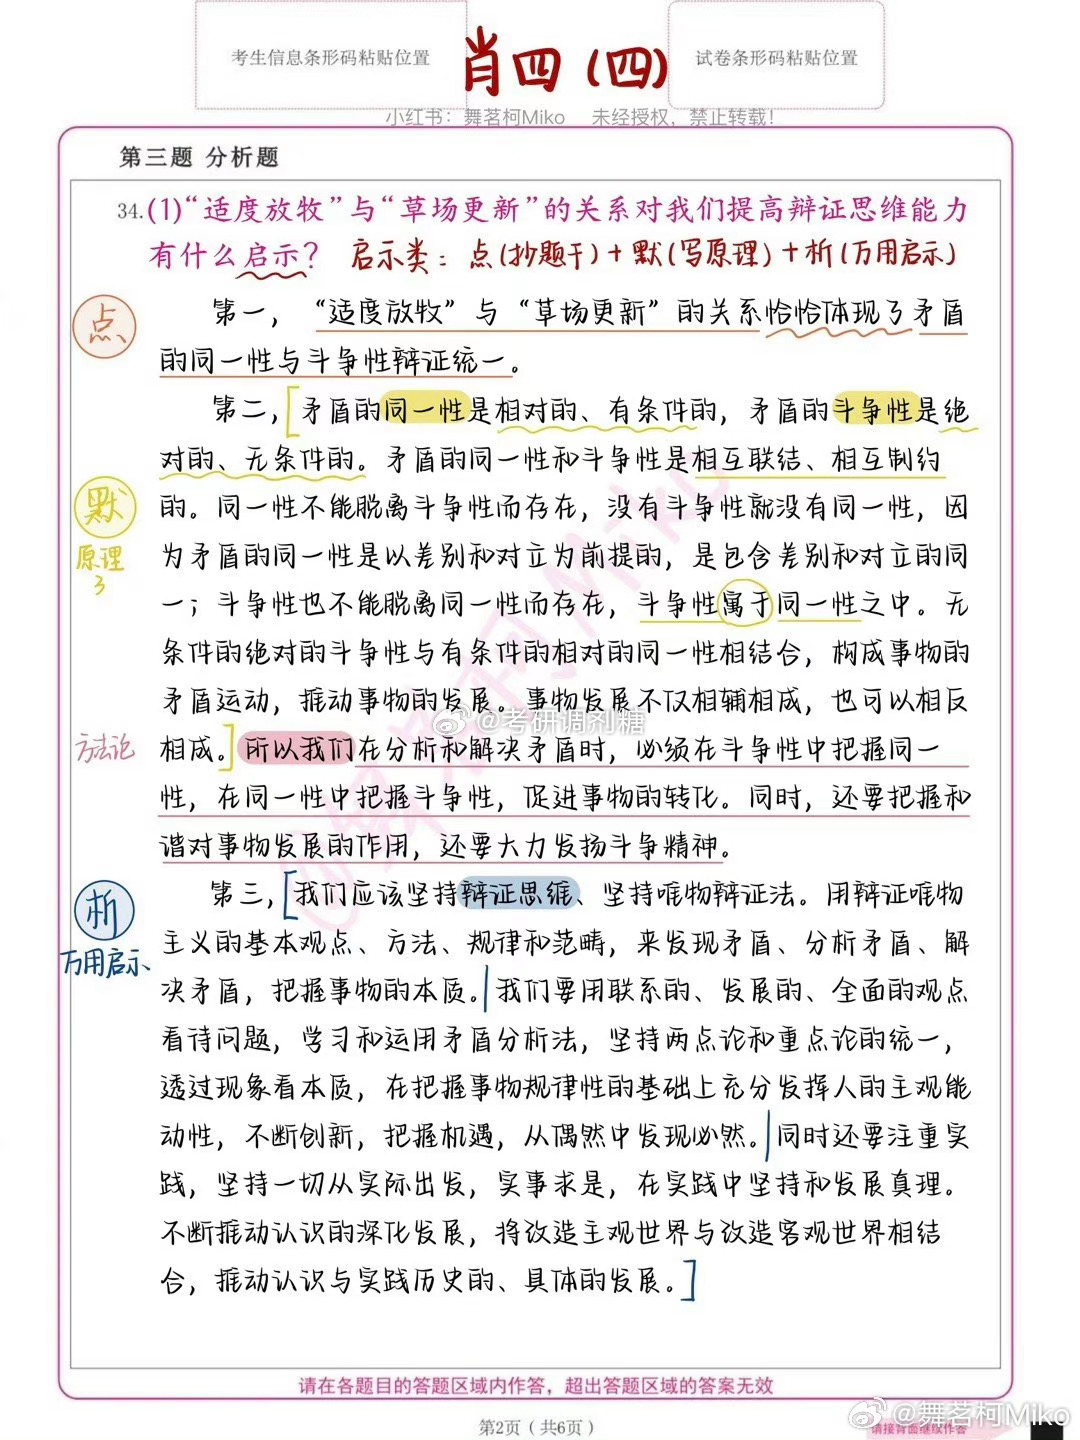 考生信息条形码粘贴位置
肖四(四)
试卷条形码粘贴位置
小红书：舞茗柯Miko 未经授权，禁止转载！
第三题 分析题
34.(1)“适度放牧”与“草场更新”的关系对我们提高辩证思维能力
有什么启示？ 启示类：点(抄题干)+默(写原理)+析(万用启示)
点
第一，“适度放牧”与“草场更新”的关系恰恰体现了矛盾
的同一性与斗争性辩证统一。
第二，[矛盾的同一性是相对的、有条件的，矛盾的斗争性是绝
对的、无条件的。矛盾的同一性和斗争性是相互联结、相互制约
默
的。同一性不能脱离斗争性而存在，没有斗争性就没有同一性，因
原理
3
为矛盾的同一性是以差别和对立为前提的，是包含差别和对立的同
一；斗争性也不能脱离同一性而存在，斗争性寓于同一性之中。无
条件的绝对的斗争性与有条件的相对的同一性相结合，构成事物的
矛盾运动，推动事物的发展。事物发展不仅相辅相成，也可以相反
@考研调剂糖
方法论
相成。]所以我们在分析和解决矛盾时，必须在斗争性中把握同一
性，在同一性中把握斗争性，促进事物的转化。同时，还要把握和
谐对事物发展的作用，还要大力发扬斗争精神。
析
第三，[我们应该坚持辩证思维、坚持唯物辩证法。用辩证唯物
万用启示
主义的基本观点、方法、规律和范畴，来发现矛盾、分析矛盾、解
决矛盾，把握事物的本质。|我们要用联系的、发展的、全面的观点
看待问题，学习和运用矛盾分析法，坚持两点论和重点论的统一，
透过现象看本质，在把握事物规律性的基础上充分发挥人的主观能
动性，不断创新，把握机遇，从偶然中发现必然。|同时还要注重实
践，坚持一切从实际出发，实事求是，在实践中坚持和发展真理。
不断推动认识的深化发展，将改造主观世界与改造客观世界相结
合，推动认识与实践历史的、具体的发展。]
@舞茗柯Miko
请在各题目的答题区域内作答，超出答题区域的答案无效
第2页（共6页）
@舞茗柯Miko
请接背面继续作答